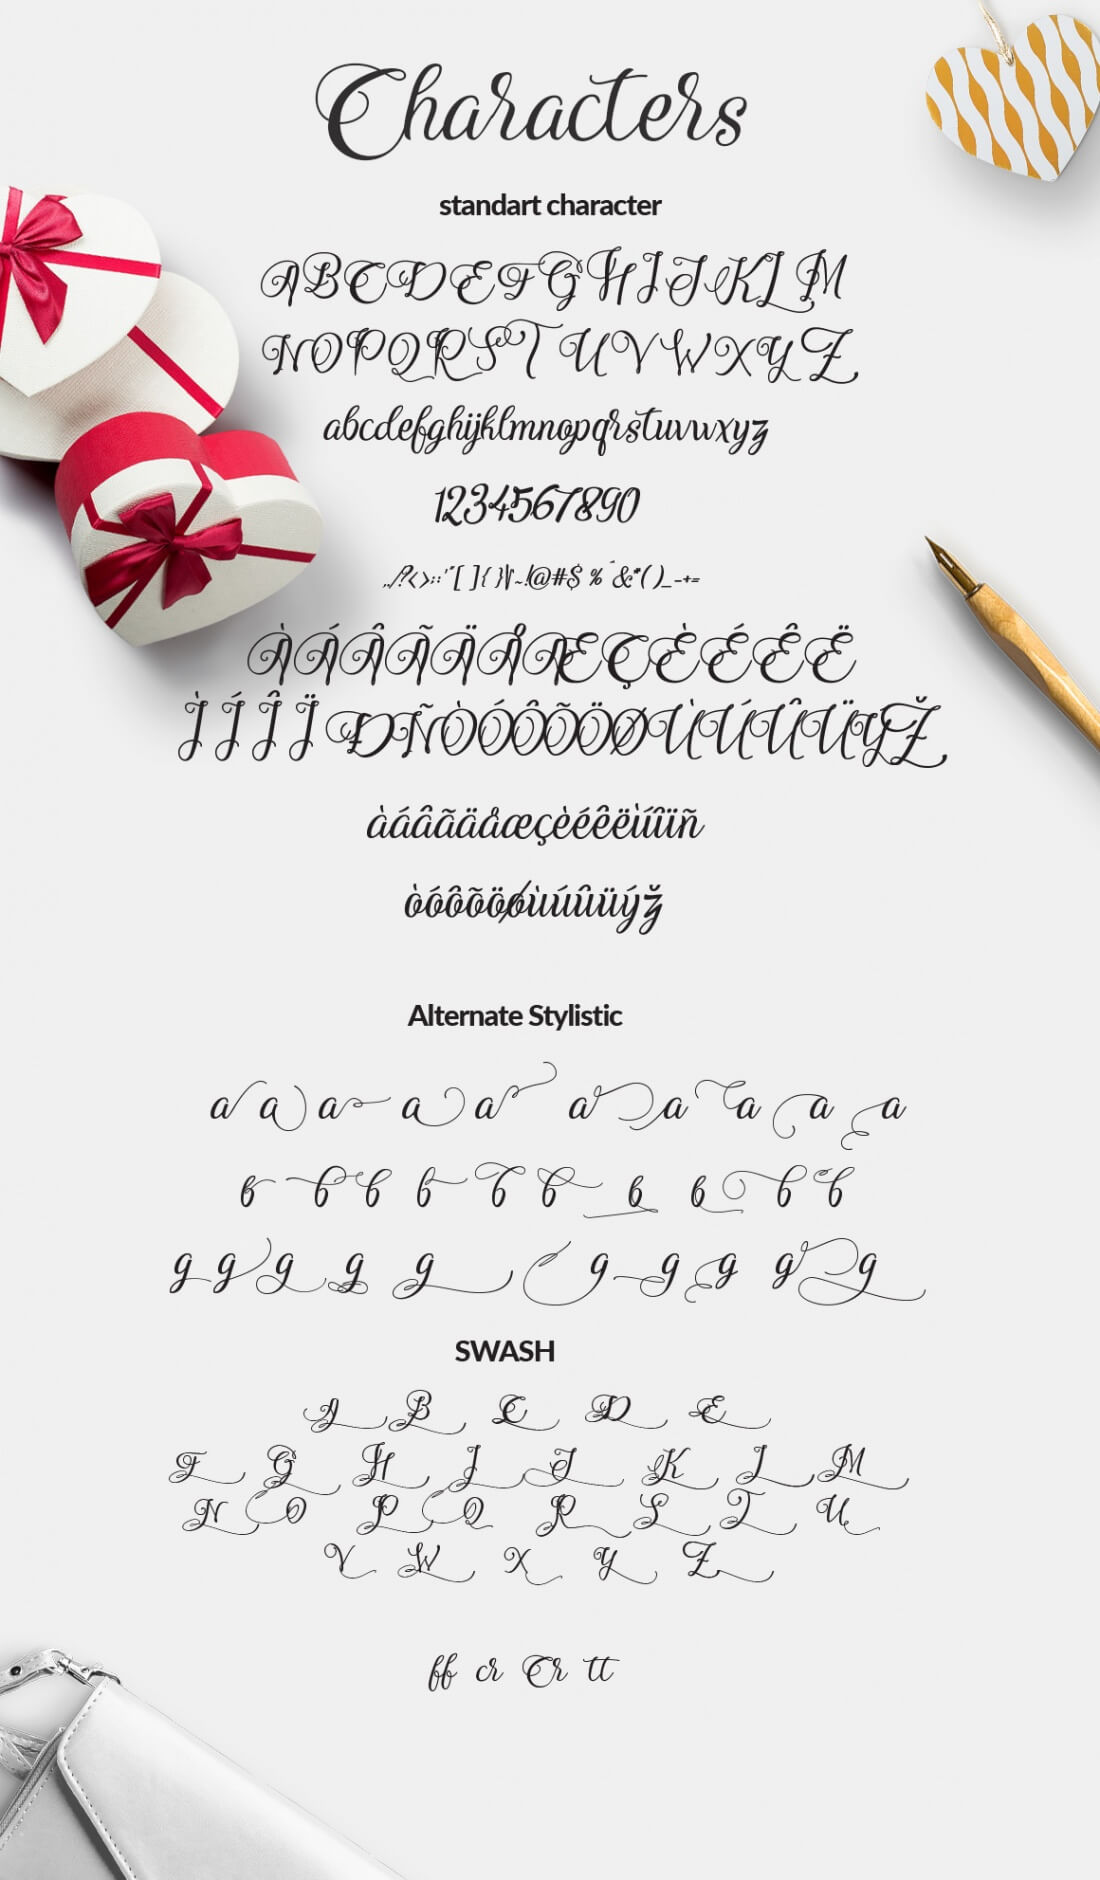 Characters
standart character
ABCDEFGHIJKLM
NOPQRSTUVWXYZ
abcdefghijklmnopqrstuvwxyz
1234567890
.,/?<>:;'"[ ]{ }|\~!@#$%^&*( )_-+=
ÀÁÂÃÄÅÆÇÈÉÊË
ÌÍÎÏÐÑÒÓÔÕÖØÙÚÛÜÝŽ
àáâãäåæçèéêëìíîïñ
òóôõöøùúûüýž
Alternate Stylistic
a a a a a a a a a a
b b b b b b b b b b
g g g g g g g g g g
SWASH
A B C D E
F G H I J K L M
N O P Q R S T U
V W X Y Z
ff cr Cr tt